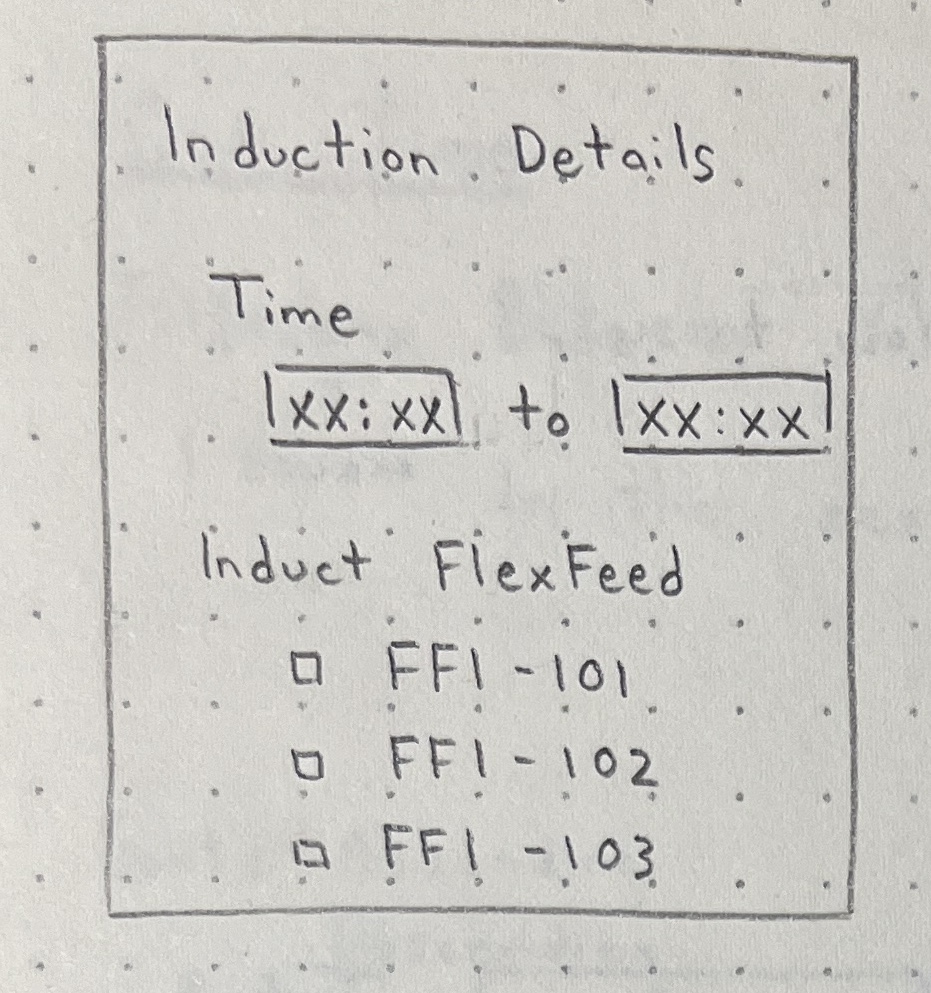 Induction Details
Time
xx:xx to xx:xx
Induct FlexFeed
FF1-101
FF1-102
FF1-103